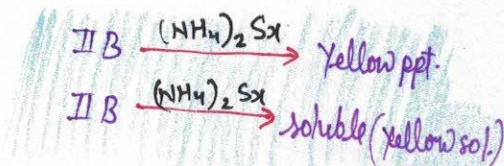 IIB (NH4)2 Sx → Yellow ppt.
IIB (NH4)2 Sx → soluble (yellow sol.)